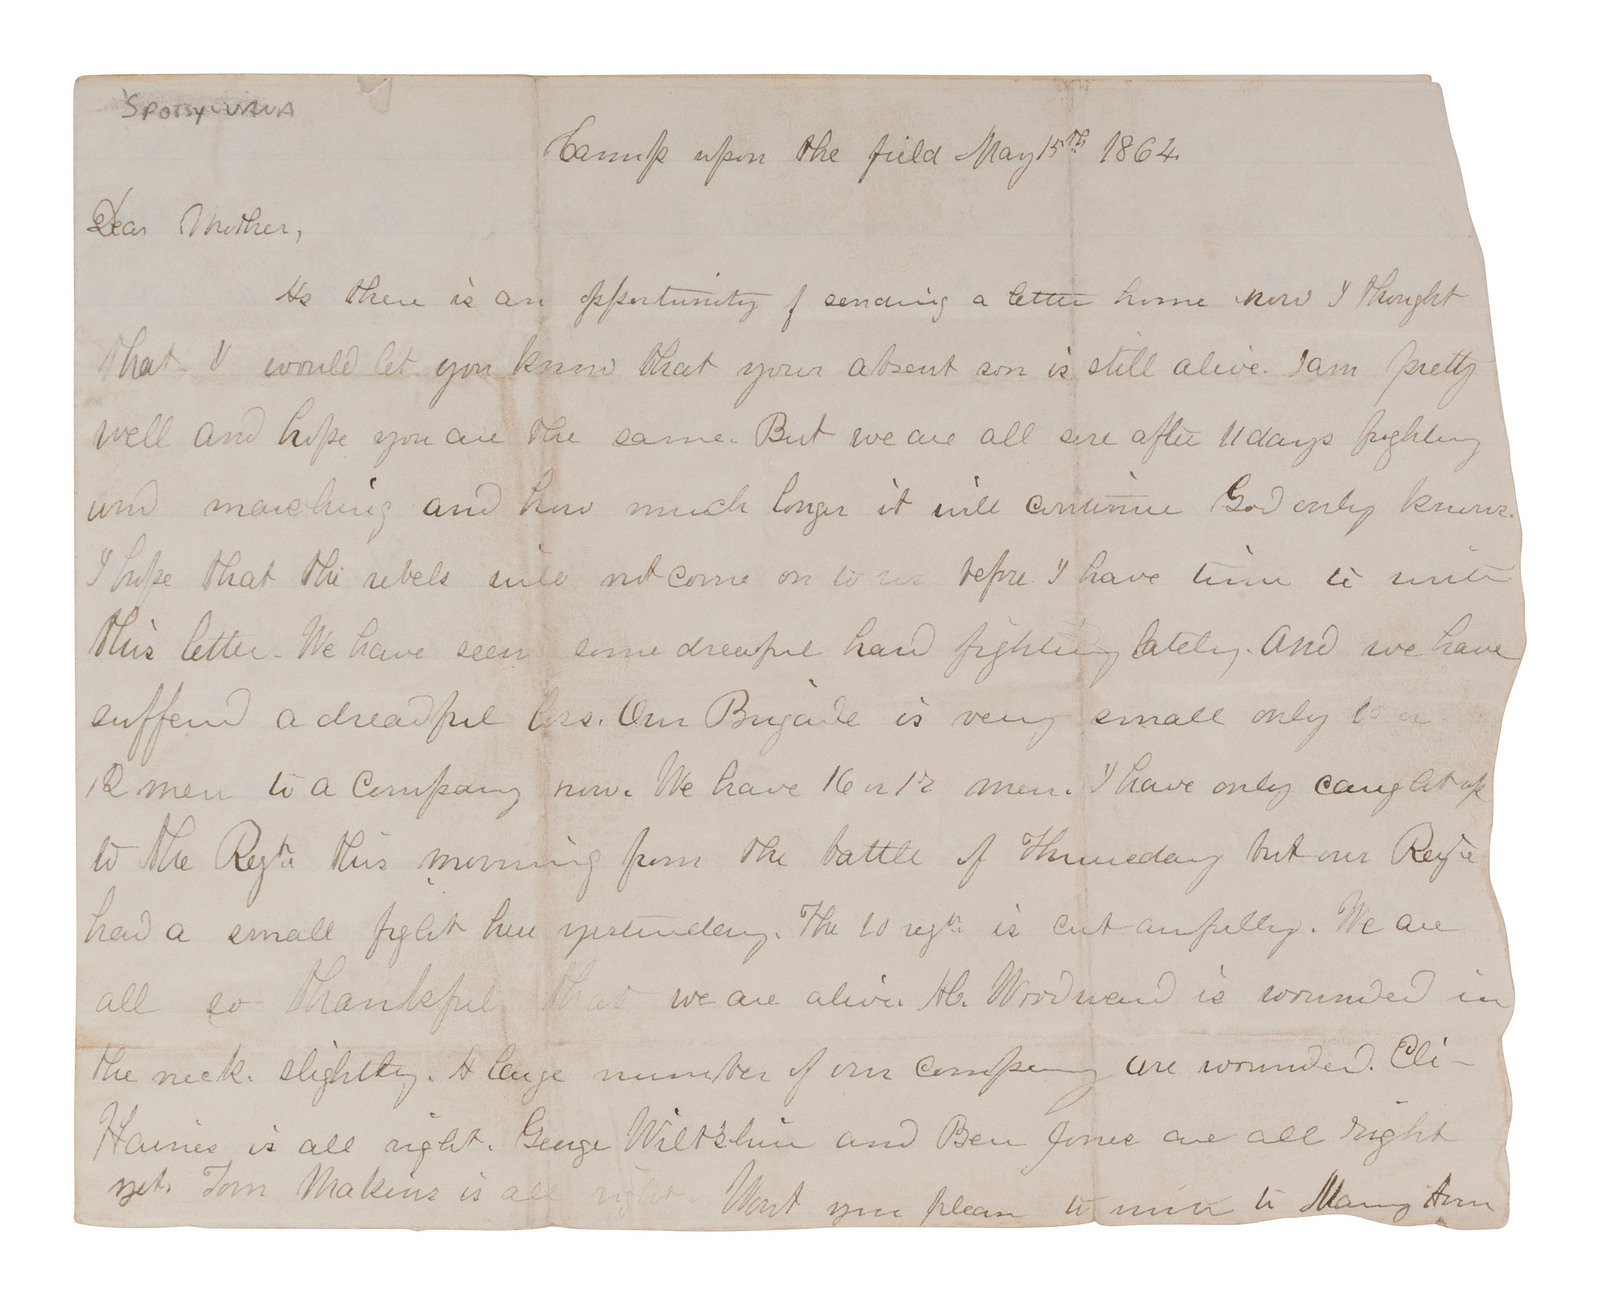 SPOTSYLVANIA
Camp upon the field May 15th 1864
Dear Mother,
As there is an opportunity of sending a letter home now I thought
that I would let you know that your absent son is still alive. I am pretty
well and hope you are the same. But we are all sore after 11 days fighting
and marching and how much longer it will continue God only knows.
I hope that the rebels will not come on to us before I have time to write
this letter. We have seen some dreadful hard fighting lately. And we have
sufferd a dreadful loss. Our Brigade is very small only 10 or
12 men to a company now. We have 16 or 18 men. I have only caught up
to the Regt this morning from the battle of Thursday but our Regt
had a small fight here yesterday. The 10 regt is cut awfully. We are
all so thankful that we are alive. H. Woodward is wounded in
the neck. slightly. A large number of our company are wounded. Eli
Haines is all right. George Wiltshire and Ben Jones are all right
yet. Tom Makins is all right. Wont you please to write to Mary Ann